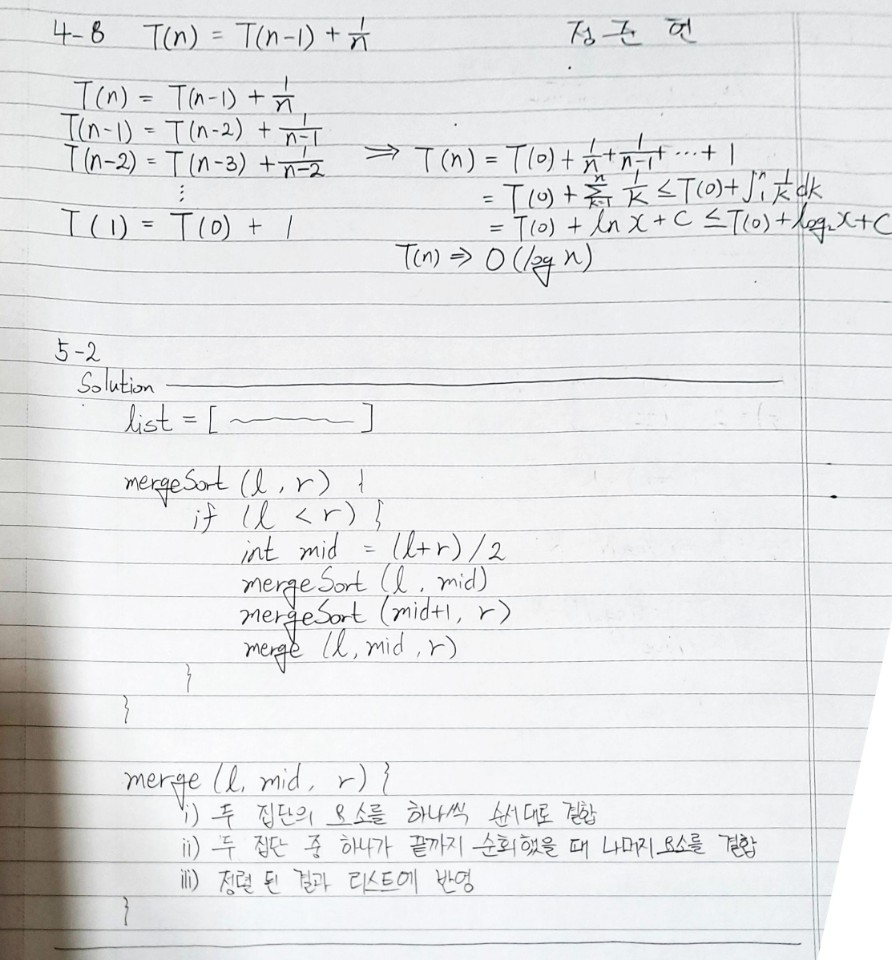 4-8 T(n) = T(n-1) + 1/n 정준현
T(n) = T(n-1) + 1/n
T(n-1) = T(n-2) + 1/(n-1)
T(n-2) = T(n-3) + 1/(n-2) ⇒ T(n) = T(0) + 1/n + 1/(n-1) + ⋯ + 1
⋮ = T(0) + ∑_{k=1}^{n} 1/k ≤ T(0) + ∫_1^n 1/k dk
T(1) = T(0) + 1 = T(0) + ln x + C ≤ T(0) + log₂x + C
T(n) ⇒ O(log n)
5-2
Solution
list = [ ~~~ ]
mergeSort (l, r) {
if (l < r) {
int mid = (l+r)/2
mergeSort (l, mid)
mergeSort (mid+1, r)
merge (l, mid, r)
}
}
merge (l, mid, r) {
i) 두 집단의 요소를 하나씩 순서대로 결합
ii) 두 집단 중 하나가 끝까지 순회했을 때 나머지 요소를 결합
iii) 정렬 된 결과 리스트에 반영
}